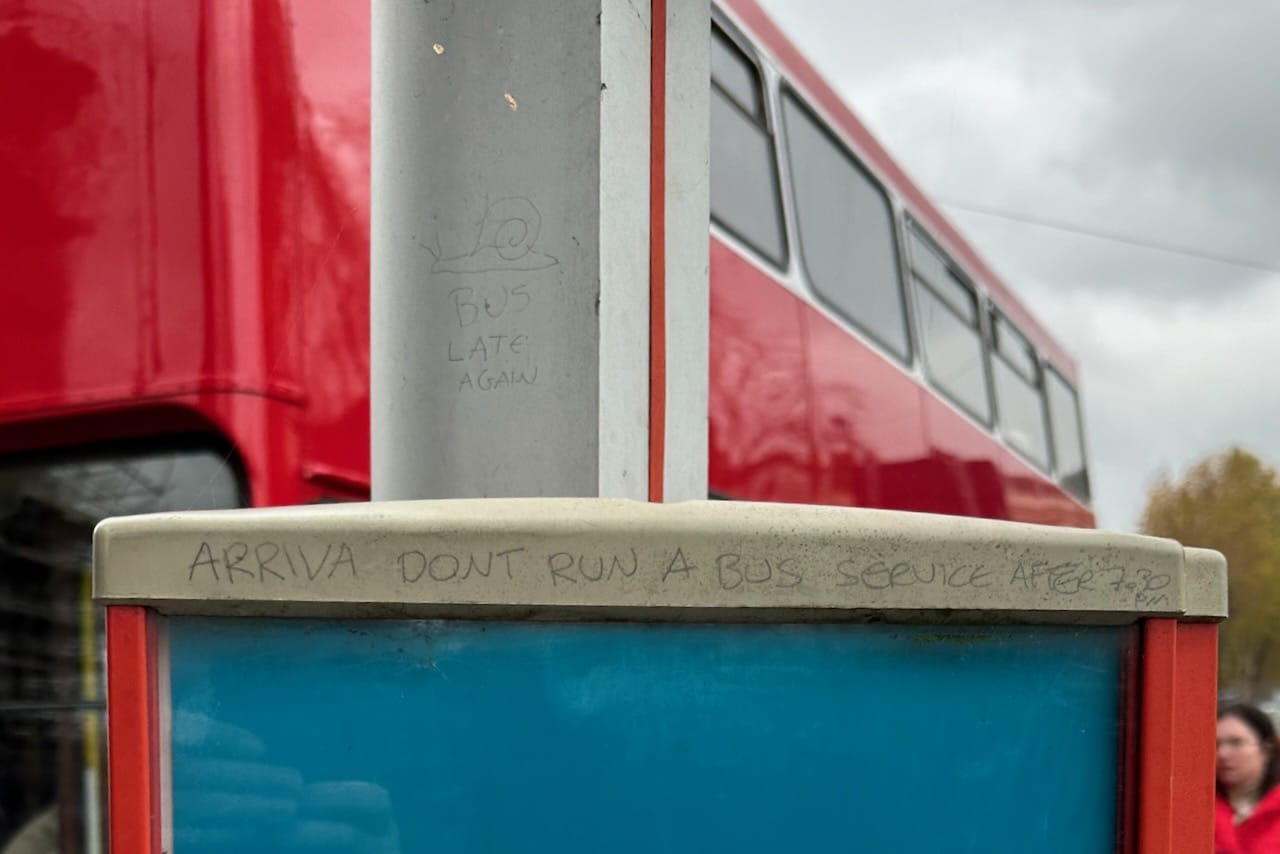 BUS
LATE
AGAIN
ARRIVA DONT RUN A BUS SERVICE AFTER 7.30
PM